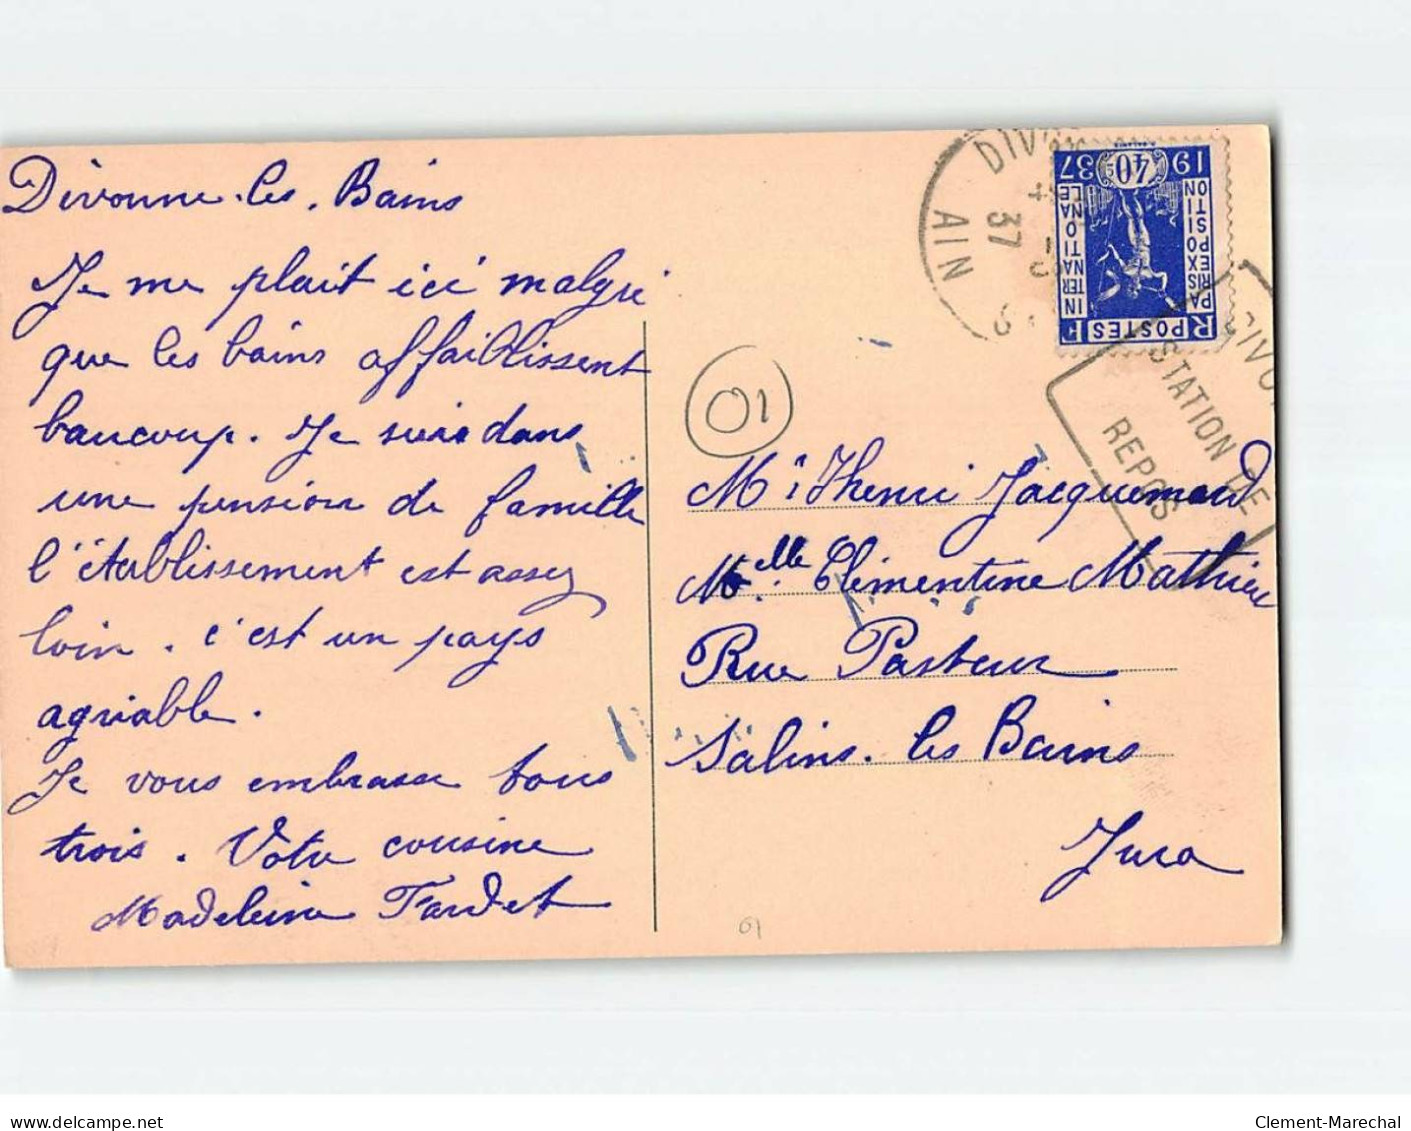 Divonne-les-Bains
Je me plait ici malgré
que les bains affaiblissent
baucoup. Je suis dans
une pension de famille
l'établissement est assez
loin. c'est un pays
agréable.
Je vous embrasse tous
trois. Votre cousine
Madeleine Fardet
01
Mr Henri Jacquemard
Melle Clémentine Mathieu
Rue Pasteur
Salins-les-Bains
Jura
AIN
37
RF POSTES
PARIS EXPOSITION
INTERNATIONALE
1937
40c
DIVO
STATION DE
REPOS
01
delcampe.net
Clement-Marechal